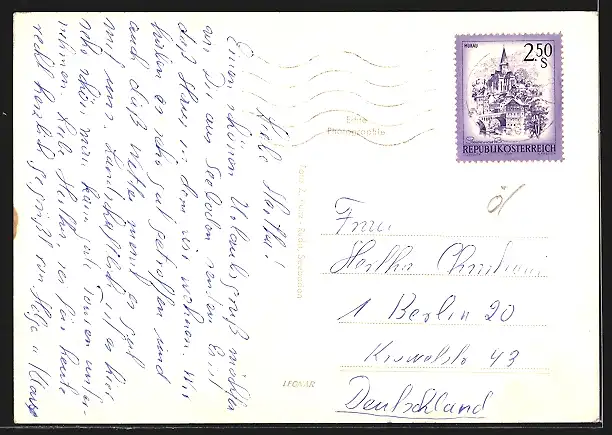 Liebe Hertha!
Einen schönen Urlaubsgruß möchten
wir Dir aus Seeboden senden. Das
Haus, in dem wir wohnen. Wir
haben es sehr gut getroffen und
auch das Wetter meint es gut
mit uns. Landschaftlich ist es hier
sehr schön, man kann gute Touren unter-
nehmen. Liebe Hertha, sei für heute
recht herzlich gegrüßt von Helga u. Klaus
Echte
Photographie
LEONAR
MURAU
2.50
S
REPUBLIK ÖSTERREICH
Ö
Frau
Hertha Christiani
1 Berlin 20
43
Deutschland